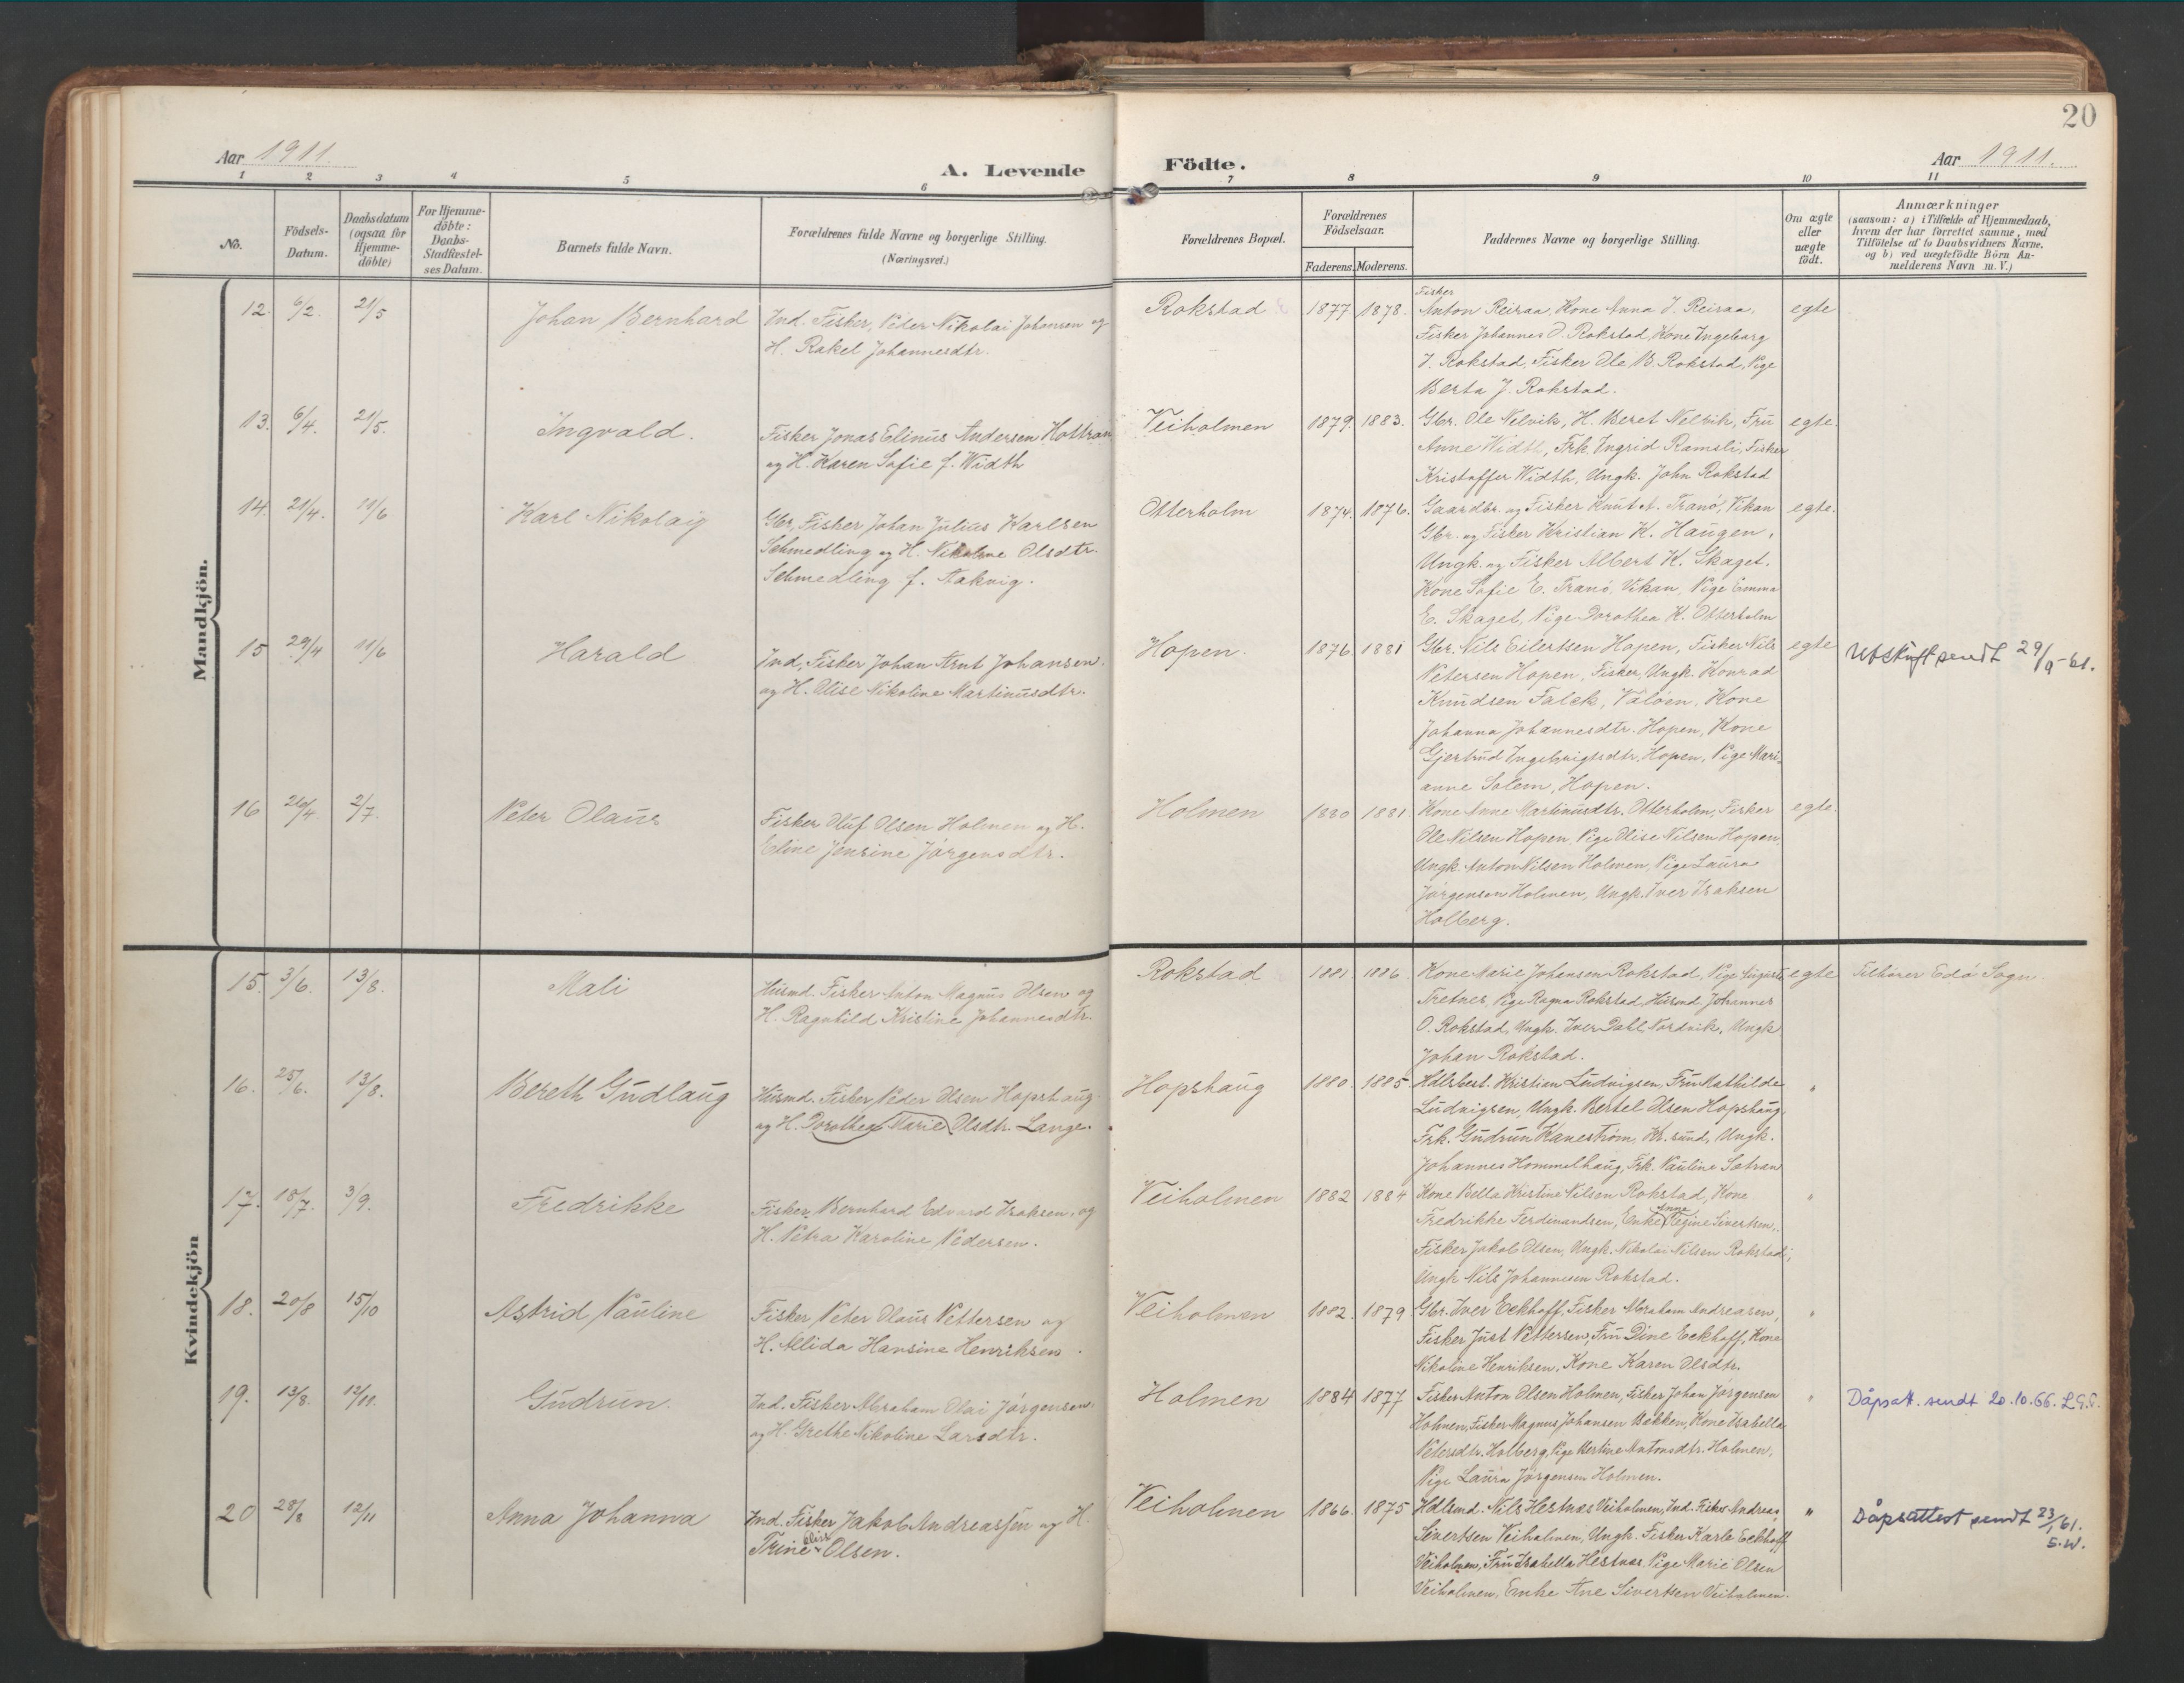 20
Aar 1911.
A. Levende Födte.
Aar 1911.
1 2 3 4 5 6 7 8 9 10 11
No.
Födsels-Datum.
Daabsdatum (ogsaa for Hjemme-döbte)
For Hjemme-döbte: Daabs-Stadfæstel-ses Datum.
Barnets fulde Navn.
Forældrenes fulde Navne og borgerlige Stilling.
(Næringsvei.)
Forældrenes Bopæl.
Forældrenes Födselsaar.
Faderens. Moderens.
Faddernes Navne og borgerlige Stilling.
Om ægte eller uægte födt.
Anmærkninger
(saasom: a) i Tilfælde af Hjemmedaab,
hvem der har forrettet samme, med
Tilföielse af to Daabsvidners Navne,
og b) ved uægtefödte Börn An-
melderens Navn m. V.)
Mandkjön.
12. 6/2. 21/5 Johan Bernhard
Ind. Fisker, Peder Nikolai Johansen og
H. Rakel Johannesdtr.
Rokstad 1877. 1878.
Fisker
Anton Reiraa, Kone Anna J. Reiraa,
Fisker Johannes O. Rokstad, Kone Ingeborg
J. Rokstad, Fisker Ole B. Rokstad, Pige
Berta J. Rokstad.
egte
13. 6/4. 21/5. Ingvald.
Fisker Jonas Elinus Andersen
og H. Karen Sofie f. Width
Veiholmen 1879. 1883.
Gbr. Ole Nelvik, H. Beret Nelvik, Fru
Anne Width, Frk. Ingrid Ramsli, Fisker
Kristoffer Width, Ungk. John Rokstad
egte.
14. 21/4. 11/6 Karl Nikolay
Gbr, Fisker Johan Julius Karlsen
Schmedling og H. Nikoline Olsdtr.
Schmedling f. Aakvig.
Otterholm 1874. 1876.
Gaardbr. og Fisker Knut A. Tranö, Vikan
Gbr. og Fisker Kristian K. Haugen,
Ungk. og Fisker Albert K. Skaget,
Kone Sofie E. Tranö, Vikan, Pige Emma
E. Skaget, Pige Dorothea K. Otterholm
egte.
15 29/4 11/6 Harald
Ind, Fisker Johan Arnt Johansen
og H. Olise Nikoline Martinusdtr.
Hopen. 1876 1881
Gbr. Nils Eilertsen Hopen, Fisker Nils
Petersen Hopen, Fisker, Ungk. Konrad
Knudsen Falck, Valöen, Kone
Johanna Johannesdtr. Hopen, Kone
Gjertrud Ingebrigtsdtr. Hopen, Pige Mari-
anne Solem, Hopen.
egte
Utskrift sendt 29/9-61.
16 26/4. 2/7. Peter Olaus
Fisker Oluf Olsen Holmen og H.
Eline Jensine Jörgensdtr.
Holmen 1880 1881.
Kone Anne Martinusdtr. Otterholm, Fisker
Ole Nilsen Hopen, Pige Olise Nilsen Hopen,
Ungk. Anton Nilsen Holmen, Pige Laura
Jörgensen Holmen, Ungk. Iver Isaksen
Holberg.
egte.
Kvindekjön
15. 3/6. 13/8. Mali
Husmd. Fisker Anton Magnus Olsen og
H. Ragnhild Kristine Johannesdtr.
Rokstad 1881 1886.
Kone Marie Johansen Rokstad, Pige
Tretnes, Pige Ragna Rokstad, Husmd. Johannes
O. Rokstad, Ungk. Iver Dahl Nordvik, Ungk
Johan Rokstad.
egte
Tilhører Edö Sogn.
16. 25/6. 13/8. Bereth Gudlaug
Husmd. Fisker Peder Olsen Hopshaug
og H. Dorothea Marie Olsdtr. Lange.
Hopshaug 1880. 1885.
Hdlsbest. Kristian Ludvigsen, Fru Mathilde
Ludvigsen, Ungk. Bertel Olsen Hopshaug,
Frk. Gudrun Kaneström, Kr.sund, Ungk.
Johannes Hommelhaug, Frk. Pauline Sætran
"
17. 18/7. 3/9. Fredrikke
Fisker Bernhard Edvard Isaksen, og
H. Petra Karoline Pedersen.
Veiholmen 1882 1884
Kone Bella Kristine Nilsen Rokstad, Kone
Fredrikke Ferdinandsen, Enke Anne Regine Sivertsen,
Fisker Jakob Olsen, Ungk. Nikolai Nilsen Rokstad,
Ungk Nils Johannesen Rokstad.
"
18. 20/8 15/10 Astrid Pauline
Fisker Peter Olaus Pettersen og
H. Alida Hansine Henriksen.
Veiholmen 1882. 1879
Gbr. Iver Eckhoff, Fisker Abraham Andreasen,
Fisker Just Pettersen, Fru Dine Eckhoff, Kone
Nikoline Henriksen, Kone Karen Olsdtr.
"
19. 13/8. 12/11. Gudrun.
Ind. Fisker Abraham Olai Jörgensen,
og H. Grethe Nikoline Larsdtr.
Holmen 1884 1877
Fisker Anton Olsen Holmen, Fisker Johan Jörgensen
Holmen, Fisker Magnus Johansen Bekken, Kone Isabella
Petersdtr. Holberg, Pige Bertine Antonsdtr. Holmen,
Pige Laura Jörgensen Holmen.
"
Dåpsatt. sendt 20.10.66.
20 28/8 12/11 Anna Johanna
Ind. Fisker Jakob Andreassen og H.
Trine Elise Olsen.
Veiholmen 1866. 1875
Hdlsmd. Nils Hestnæs Veiholmen, Ind. Fisker Andreas
Sivertsen Veiholmen, Ungk. Fisker Karl Eckhoff
Veiholmen, Fru Isabella Hestnæs, Pige Marie Olsen
Veiholmen, Enke Ane Sivertsen Veiholmen.
"
Dåpsattest sendt 23/1 61.
S.W.